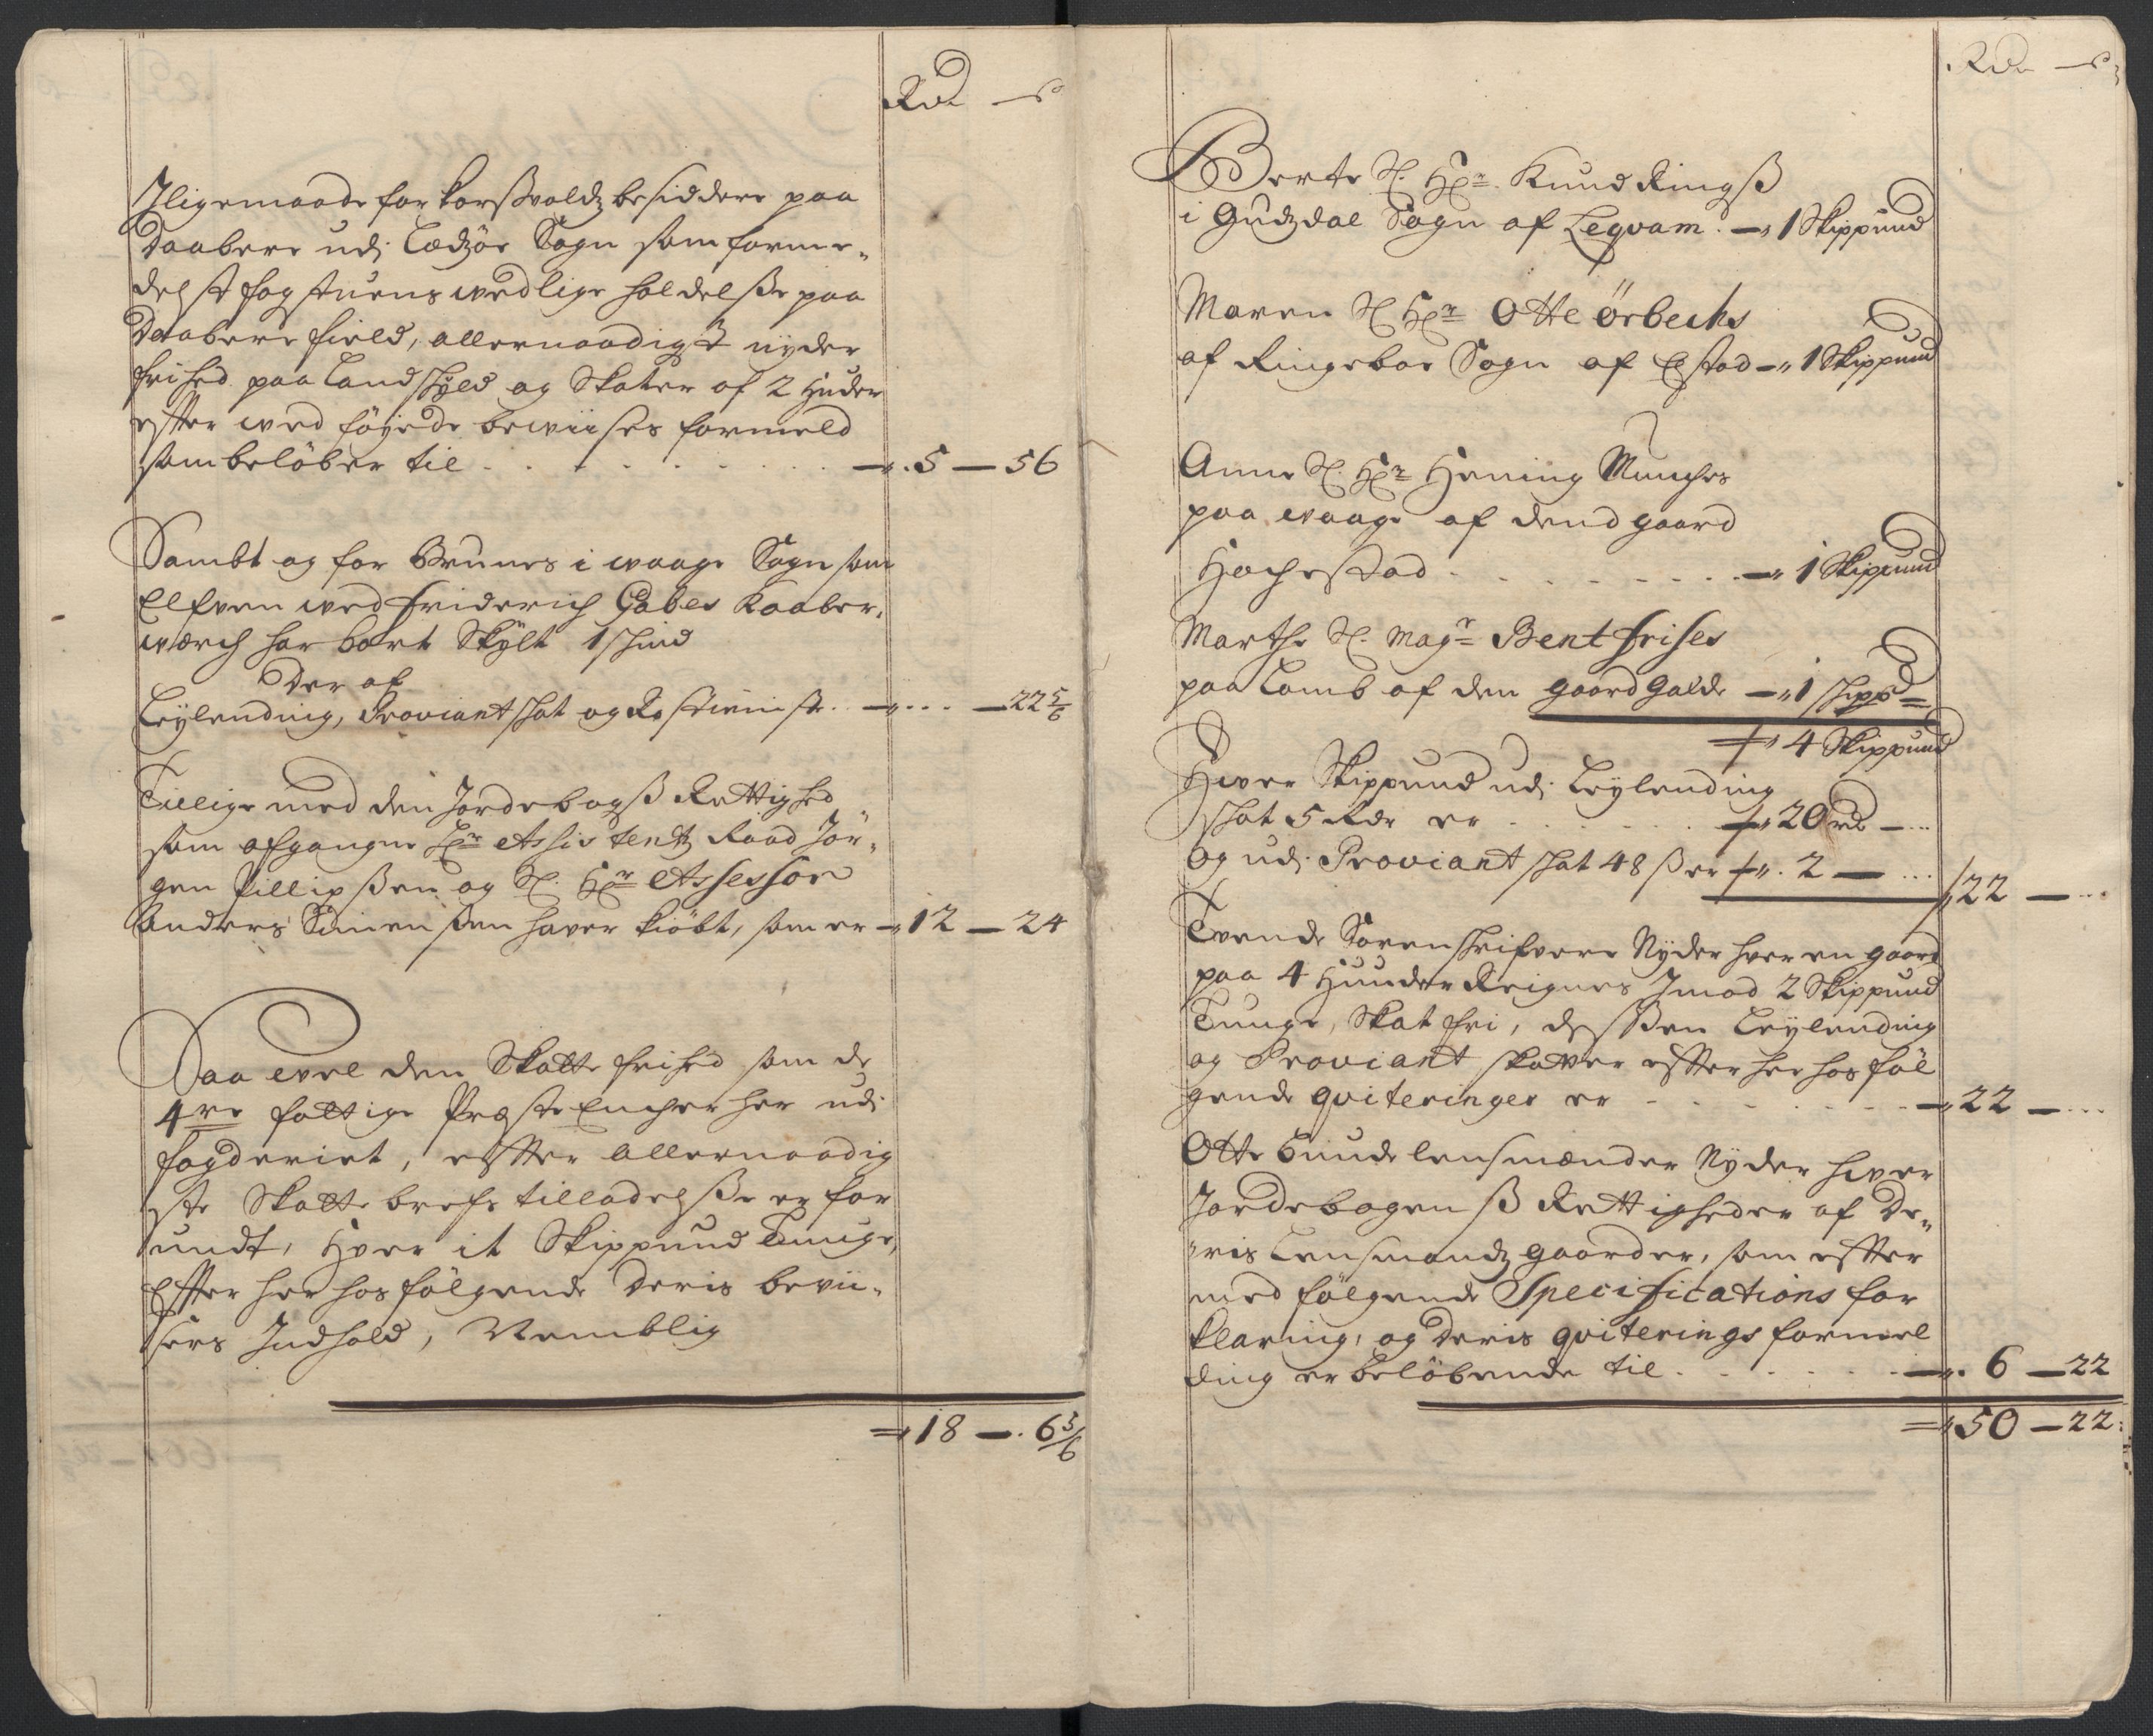 Rdr — ß
Iligemaade for korsßvoldz besiddere paa
Daabere udj Ledsøe Sogn som forme„
delst fogstuens wedlige holdelße paa
Daabere field, allernaadigst nyder
frihed paa Landskyld og Skater af 2 Huder
effter wed føyede bewiises formeld
som beløber til . . . . . . . . — 5 — 56
Sambt og for Brunes i waage Sogn som
Elfven wed friderich Gabes Kaaber„
werch har bort Skylt 1 skind
Der af
Leylending, Proviant skat og Rostienist . — . . . — 22 5/6
Tillige med den Jordebogß Rettighed
som afgangne Hr Assistentz Raad Jør„
gen Pillipßen og Sl. Hr Assessor
Anders Simensen haver kiøbt, som er — 12 — 24
Saa well den Skatte frihed som de
4re fattige Præste Encher her udj
fogderiet, effter allernaadig
ste Skatte brefs tilladelße er for
undt, Hver it Skippund Tunge,
Effter her hos følgende deris bevii„
sers Indhold, Nemblig
— 18 — 6 5/6
Rdr — ß
Berte Sl. Hr. Knud Ringß
i Gudzdal Sogn af Leqvam . — 1 Skippund
Maren Sl Hr Otte Örbechs
af Ringeboe Sogn af Elstad — 1 Skippund
Anne Sl. Hr Hening Munches
paa waage af dend gaard
Hochestad . . . . . . . . — 1 Skippund
Marthe Sl. Magr Bent frises
paa Lomb af den gaard Galde — 1 skippd
4 Skippund
Hver Skippund udj Leylending
skat 5 Rdr er . . . . . . 20 rd — . . .
og udj Proviant skat 48 ß er . 2 — . . .
22 — . . .
Tvende Sorenskrifvere Nyder hver en gaard
paa 4 Huuder Reignes Imod 2 Skippund
Tunge, Skat fri, desßen Leylending
og Proviant skatter effter her hos føl
gende qviteringer er . . . . . . . — 22 — . . .
Otte Bunde lensmænder Nyder hwer
Jordebogenß Rettigheder af De„
„ris Lensmandz gaarder, som effter
med følgende Specifications for
klaring, og deris qviterings formel
ding er beløbende til . . . . . . — 6 — 22
50 — 22